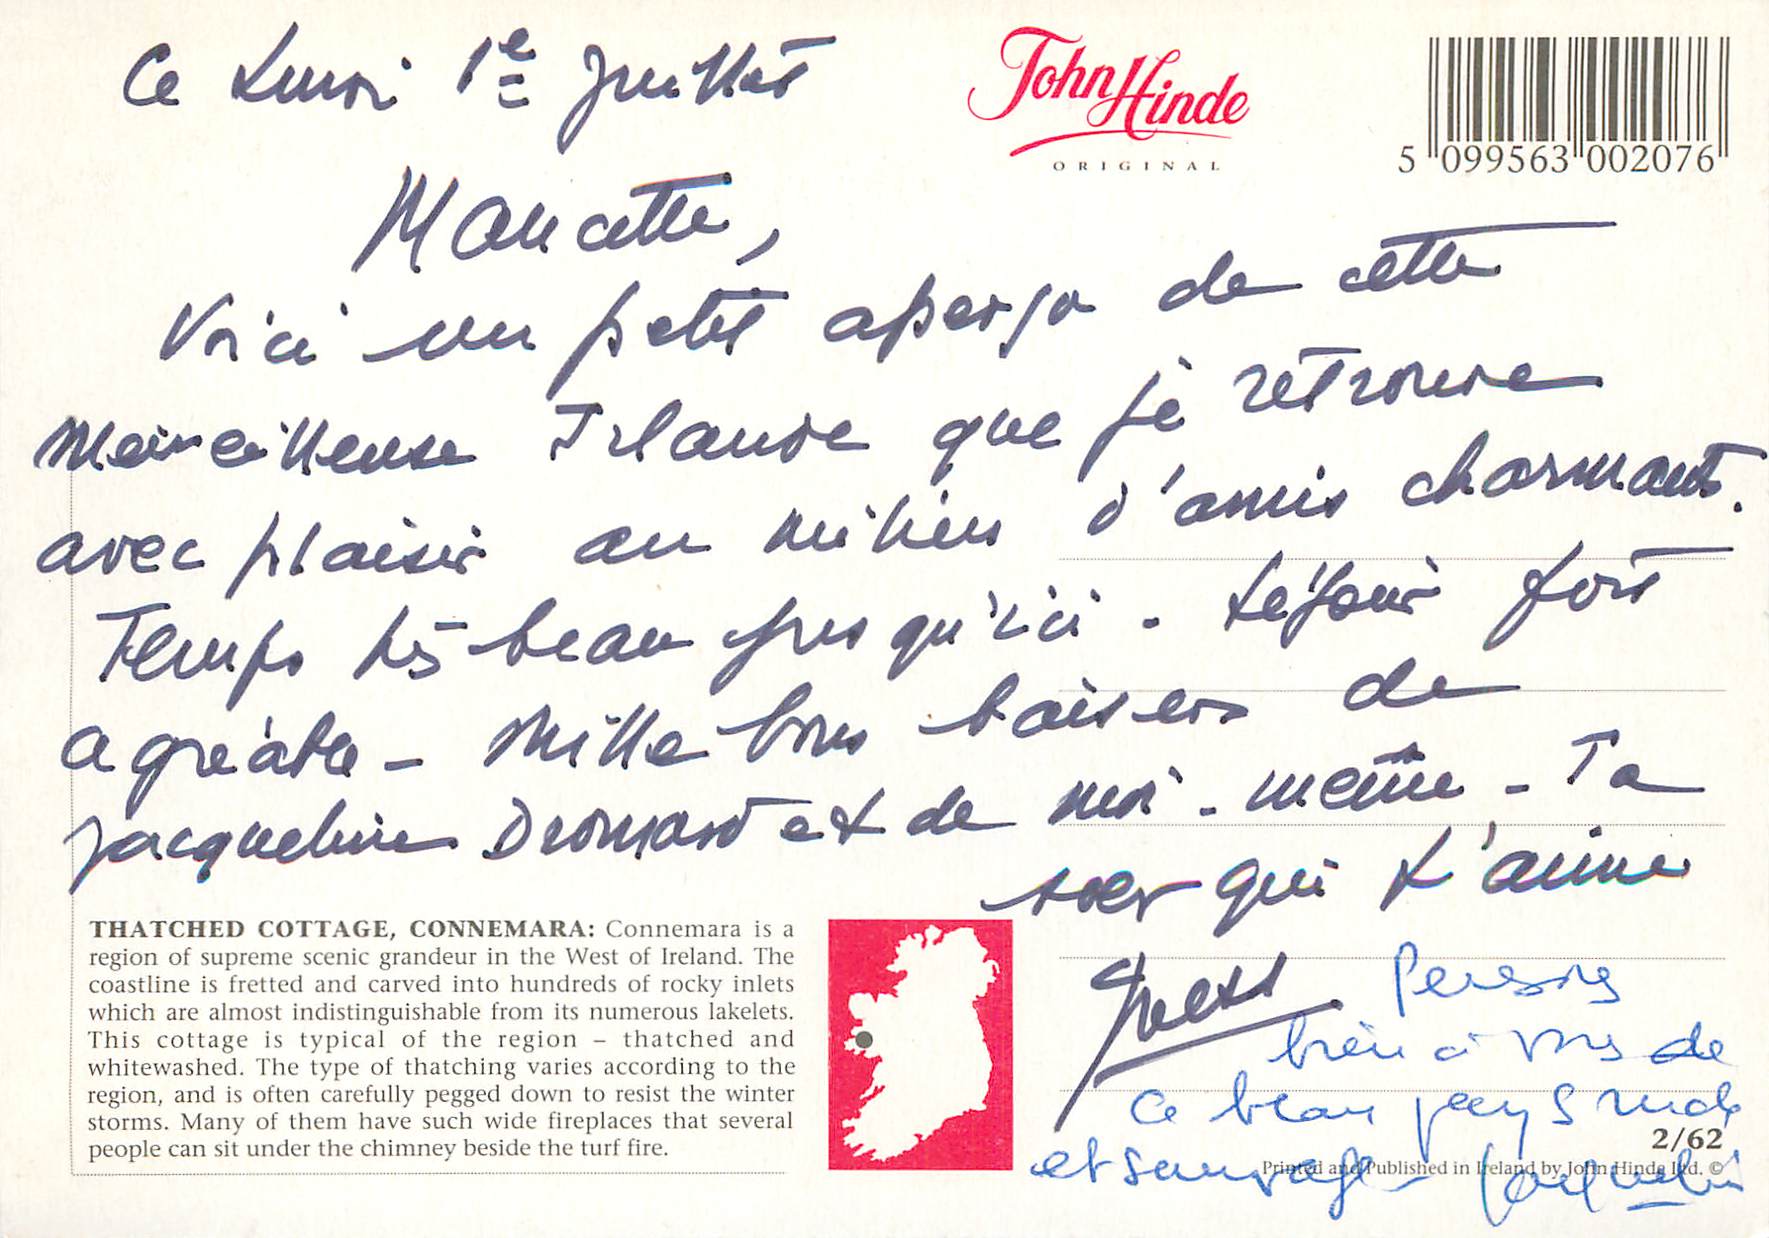 Ce Lundi 1e Juillet
John Hinde
ORIGINAL
5 099563 002076
Maucette,
Voici un petit aperçu de cette
merveilleuse Irlande que je retrouve
avec plaisir au milieu d'amis charmants.
Temps très beau jusqu'ici - Séjour fort
agréable - Mille bons baisers de
Jacqueline Dromard et de moi-même - Ta
sœur qui t'aime
Pensons
bien à vous de
ce beau pays rude
et sauvage Jacqueline
THATCHED COTTAGE, CONNEMARA: Connemara is a
region of supreme scenic grandeur in the West of Ireland. The
coastline is fretted and carved into hundreds of rocky inlets
which are almost indistinguishable from its numerous lakelets.
This cottage is typical of the region – thatched and
whitewashed. The type of thatching varies according to the
region, and is often carefully pegged down to resist the winter
storms. Many of them have such wide fireplaces that several
people can sit under the chimney beside the turf fire.
2/62
Printed and Published in Ireland by John Hinde Ltd. ©